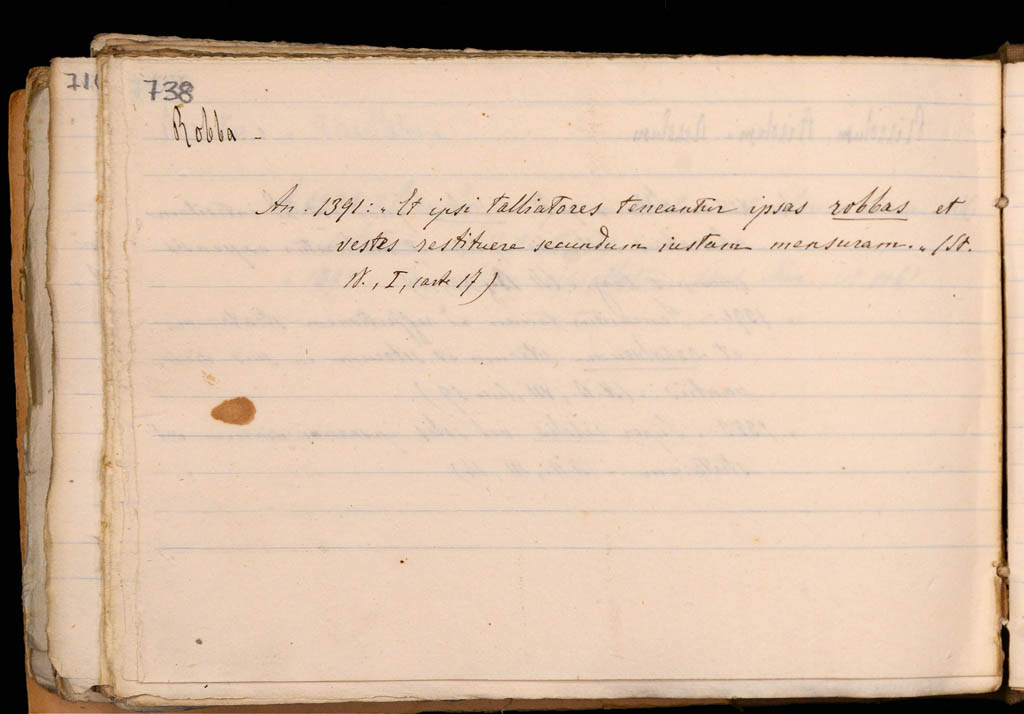 71
738
Robba -
An. 1391: "Et ipsi talliatores teneantur ipsas robbas et
vestes restituere secundum iustam mensuram." (St.
N., I, carte 17)